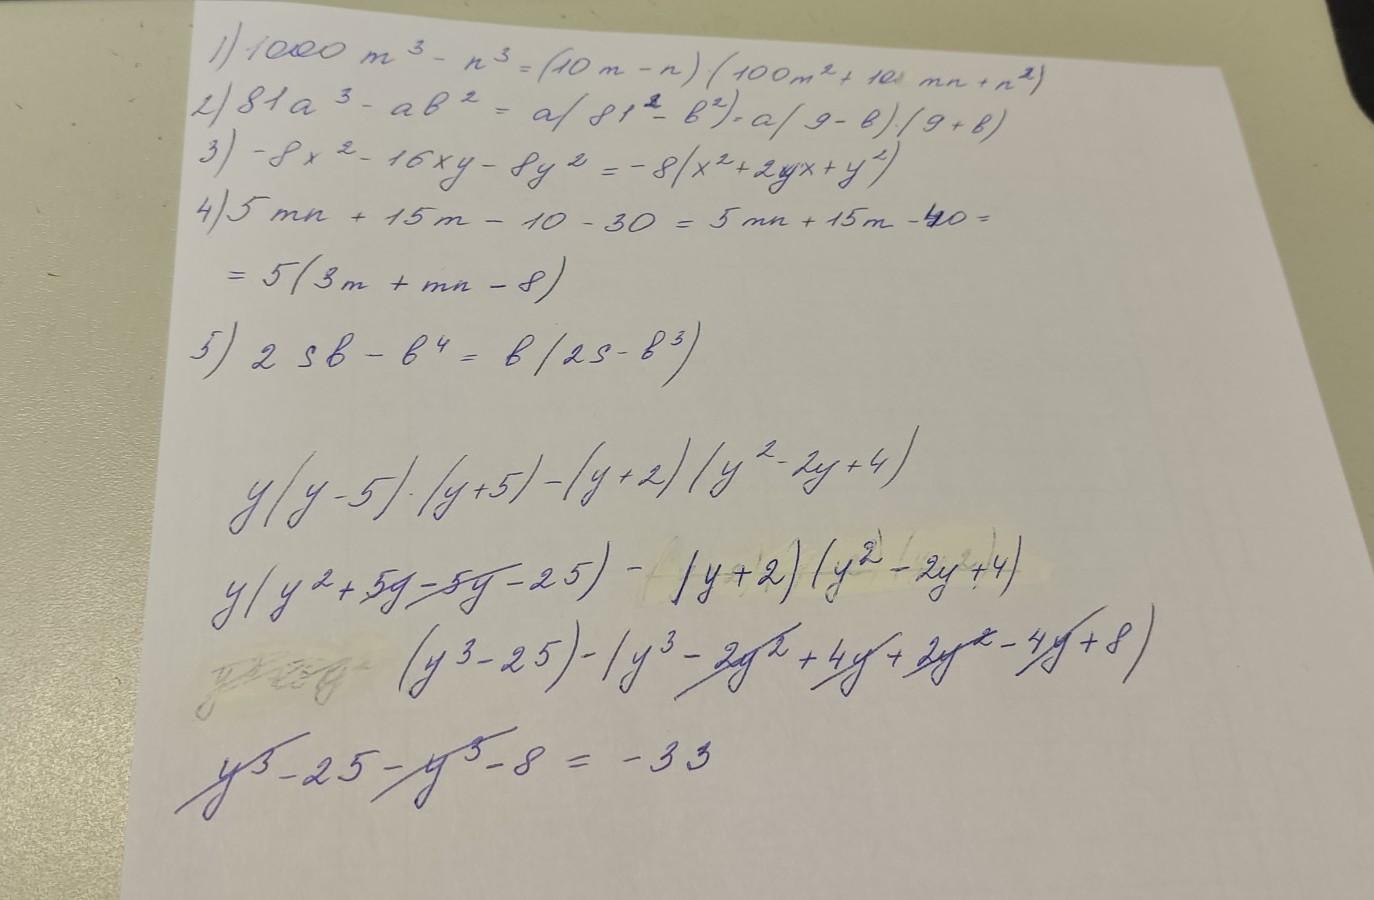 1) 1000 m³ - n³ = (10m - n) (100m² + 10 mn + n²)
2) 81a³ - aв² = a(81² - в²) = a(9 - в)·(9 + в)
3) -8x² - 16xy - 8y² = -8(x² + 2yx + y²)
4) 5mn + 15m - 10 - 30 = 5mn + 15m - 40 =
= 5(3m + mn - 8)
5) 2sв - в⁴ = в(2s - в³)
y(y - 5)·(y + 5) - (y + 2)(y² - 2y + 4)
y(y² + 5y - 5y - 25) - (y + 2)(y² - 2y + 4)
(y³ - 25) - (y³ - 2y² + 4y + 2y² - 4y + 8)
y³ - 25 - y³ - 8 = -33